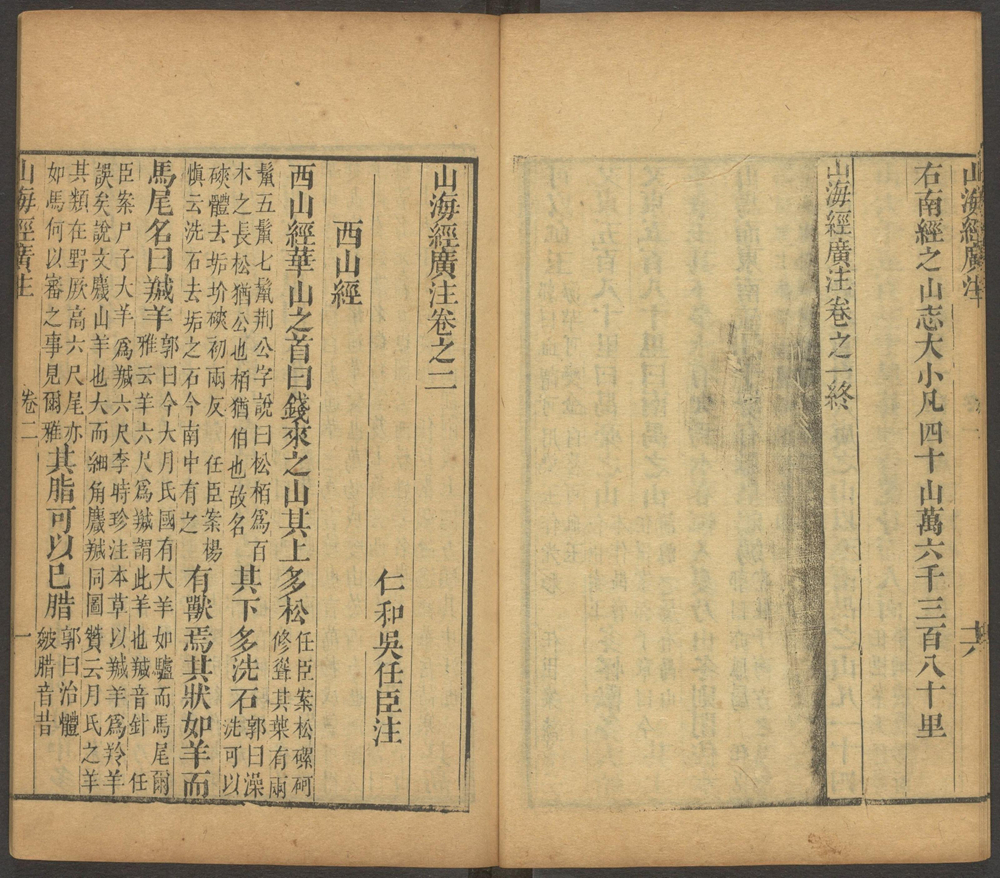 山海經廣注
右南經之山志大小凡四十山萬六千三百八十里
山海經廣注卷之一終
山海經廣注卷之二
仁和吳任臣注
西山經
西山經華山之首曰錢來之山其上多松
任臣案松磥砢
修聳其葉有兩
鬣五鬣七鬣荆公字說曰松栢爲百
木之長松猶公也栢猶伯也故名
其下多洗石
郭曰澡
洗可以
磢體去垢圿磢初兩反　任臣案楊
慎云洗石去垢之石今南中有之
有獸焉其狀如羊而
馬尾名曰羬羊
郭曰今大月氏國有大羊如驢而馬尾爾
雅云羊六尺爲羬謂此羊也羬音針　任
臣案尸子大羊爲羬六尺李時珍注本草以羬羊爲羚羊
誤矣說文麢山羊也大而細角麢羬同圖贊云月氏之羊
其類在野厥高六尺尾亦
如馬何以審之事見爾雅
其脂可以已腊
郭曰治體
皴腊音昔
山海經廣注
卷二
一